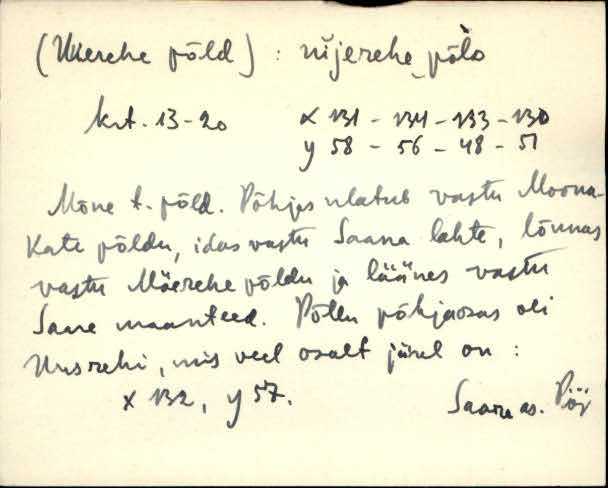 (Uuerehe põld) : ùijerehe‿pòlo
krt. 13-20 x 131 - 134 - 133 - 130
y 58 - 56 - 48 - 51
Mõne t. põld. Põhjas ulatub vastu Moona-
kate põldu, idas vastu Saana lahte, lõunas
vastu Mäerehe põldu ja läänes vastu
Sane maanteed. Põllu põhjaosas oli
Uusrehi, mis veel osalt järel on :
x 132, y 57.
Saare as. Pöi